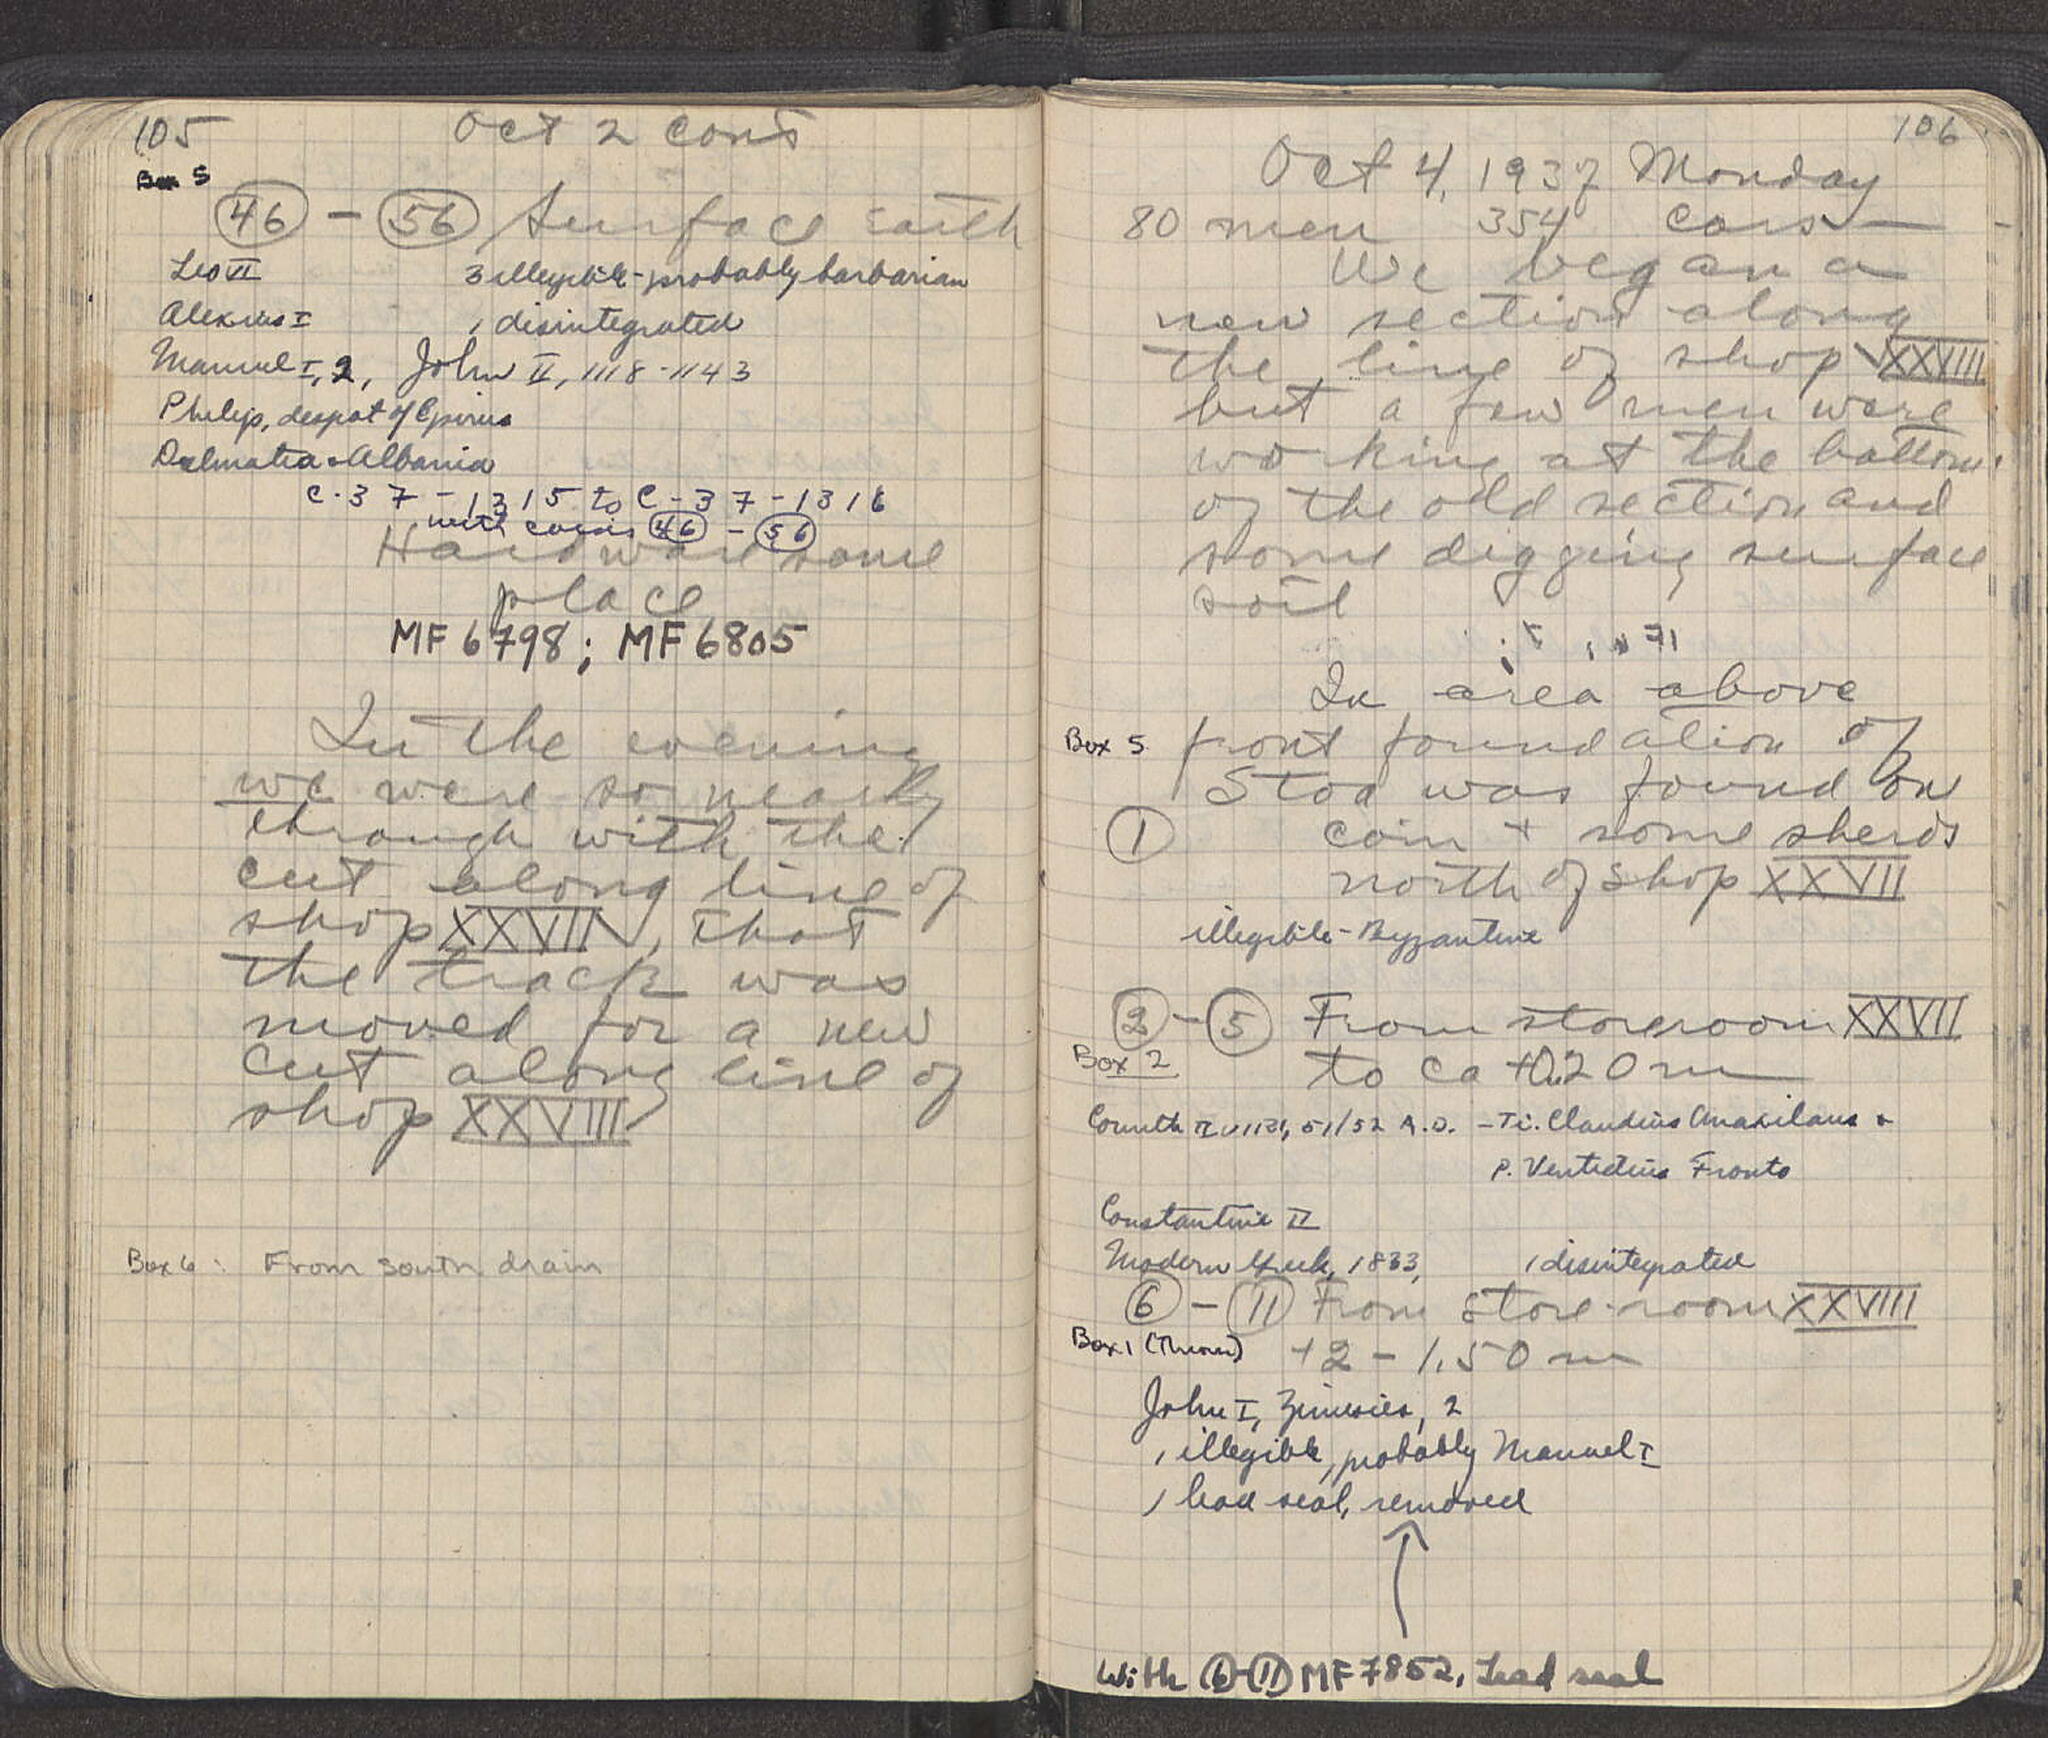 105
Oct 2 cont
Box 5
46 - 56 Surface earth
Leo VI 3 illegible - probably barbarian
Alexius I 1 disintegrated
Manuel I, 2, John II, 1118-1143
Philip, despot of Epirus
Dalmatia & Albania
C-37-1315 to C-37-1316
with coins 46 - 56
Hardware same
place
MF 6798; MF 6805
In the evening
we were so nearly
through with the
cut along line of
shop XXVII, that
the track was
moved for a new
cut along line of
shop XXVIII
Box 6: From south drain
106
Oct 4, 1937 Monday
80 men 354 cars
We began a
new section along
the line of shop XXVIII
but a few men were
working at the bottom
of the old section and
some digging surface
soil
In area above
Box 5 front foundation of
Stoa was found one
1 coin + some sherds
north of shop XXVII
illegible - Byzantine
2 - 5 From storeroom XXVII
Box 2 to ca +0.20 m
Corinth II vir, 51/52 A.D. - Ti. Claudius Anaxilaus &
P. Ventidius Fronto
Constantine II
Modern Greek, 1833, 1 disintegrated
6 - 11 From store-room XXVIII
Box 1 (Threw) +2 - 1.50 m
John I, Zimisces, 2
1 illegible, probably Manuel I
1 lead seal, removed
With 6-11 MF 7852, Lead seal